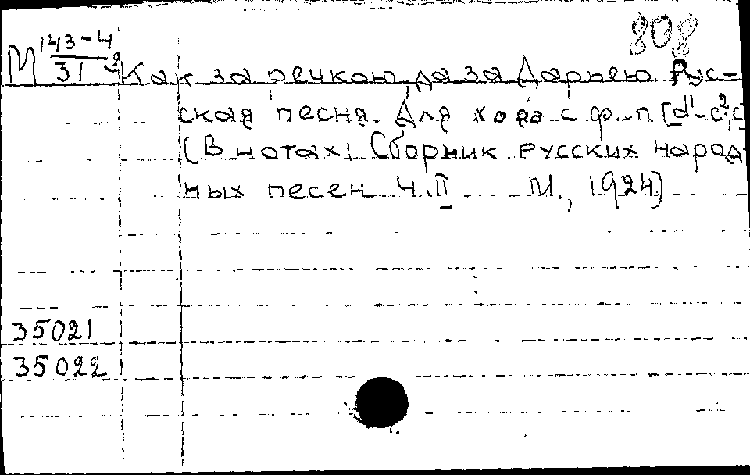 808
М 143-4
31-2 Как за речкою, да за Дарьею Рус-
ская песня. Для хора с ф.-п. [d¹-c²,c
(В нотах: Сборник русских народ
ных песен Ч.II М., 1924)
35021
35022